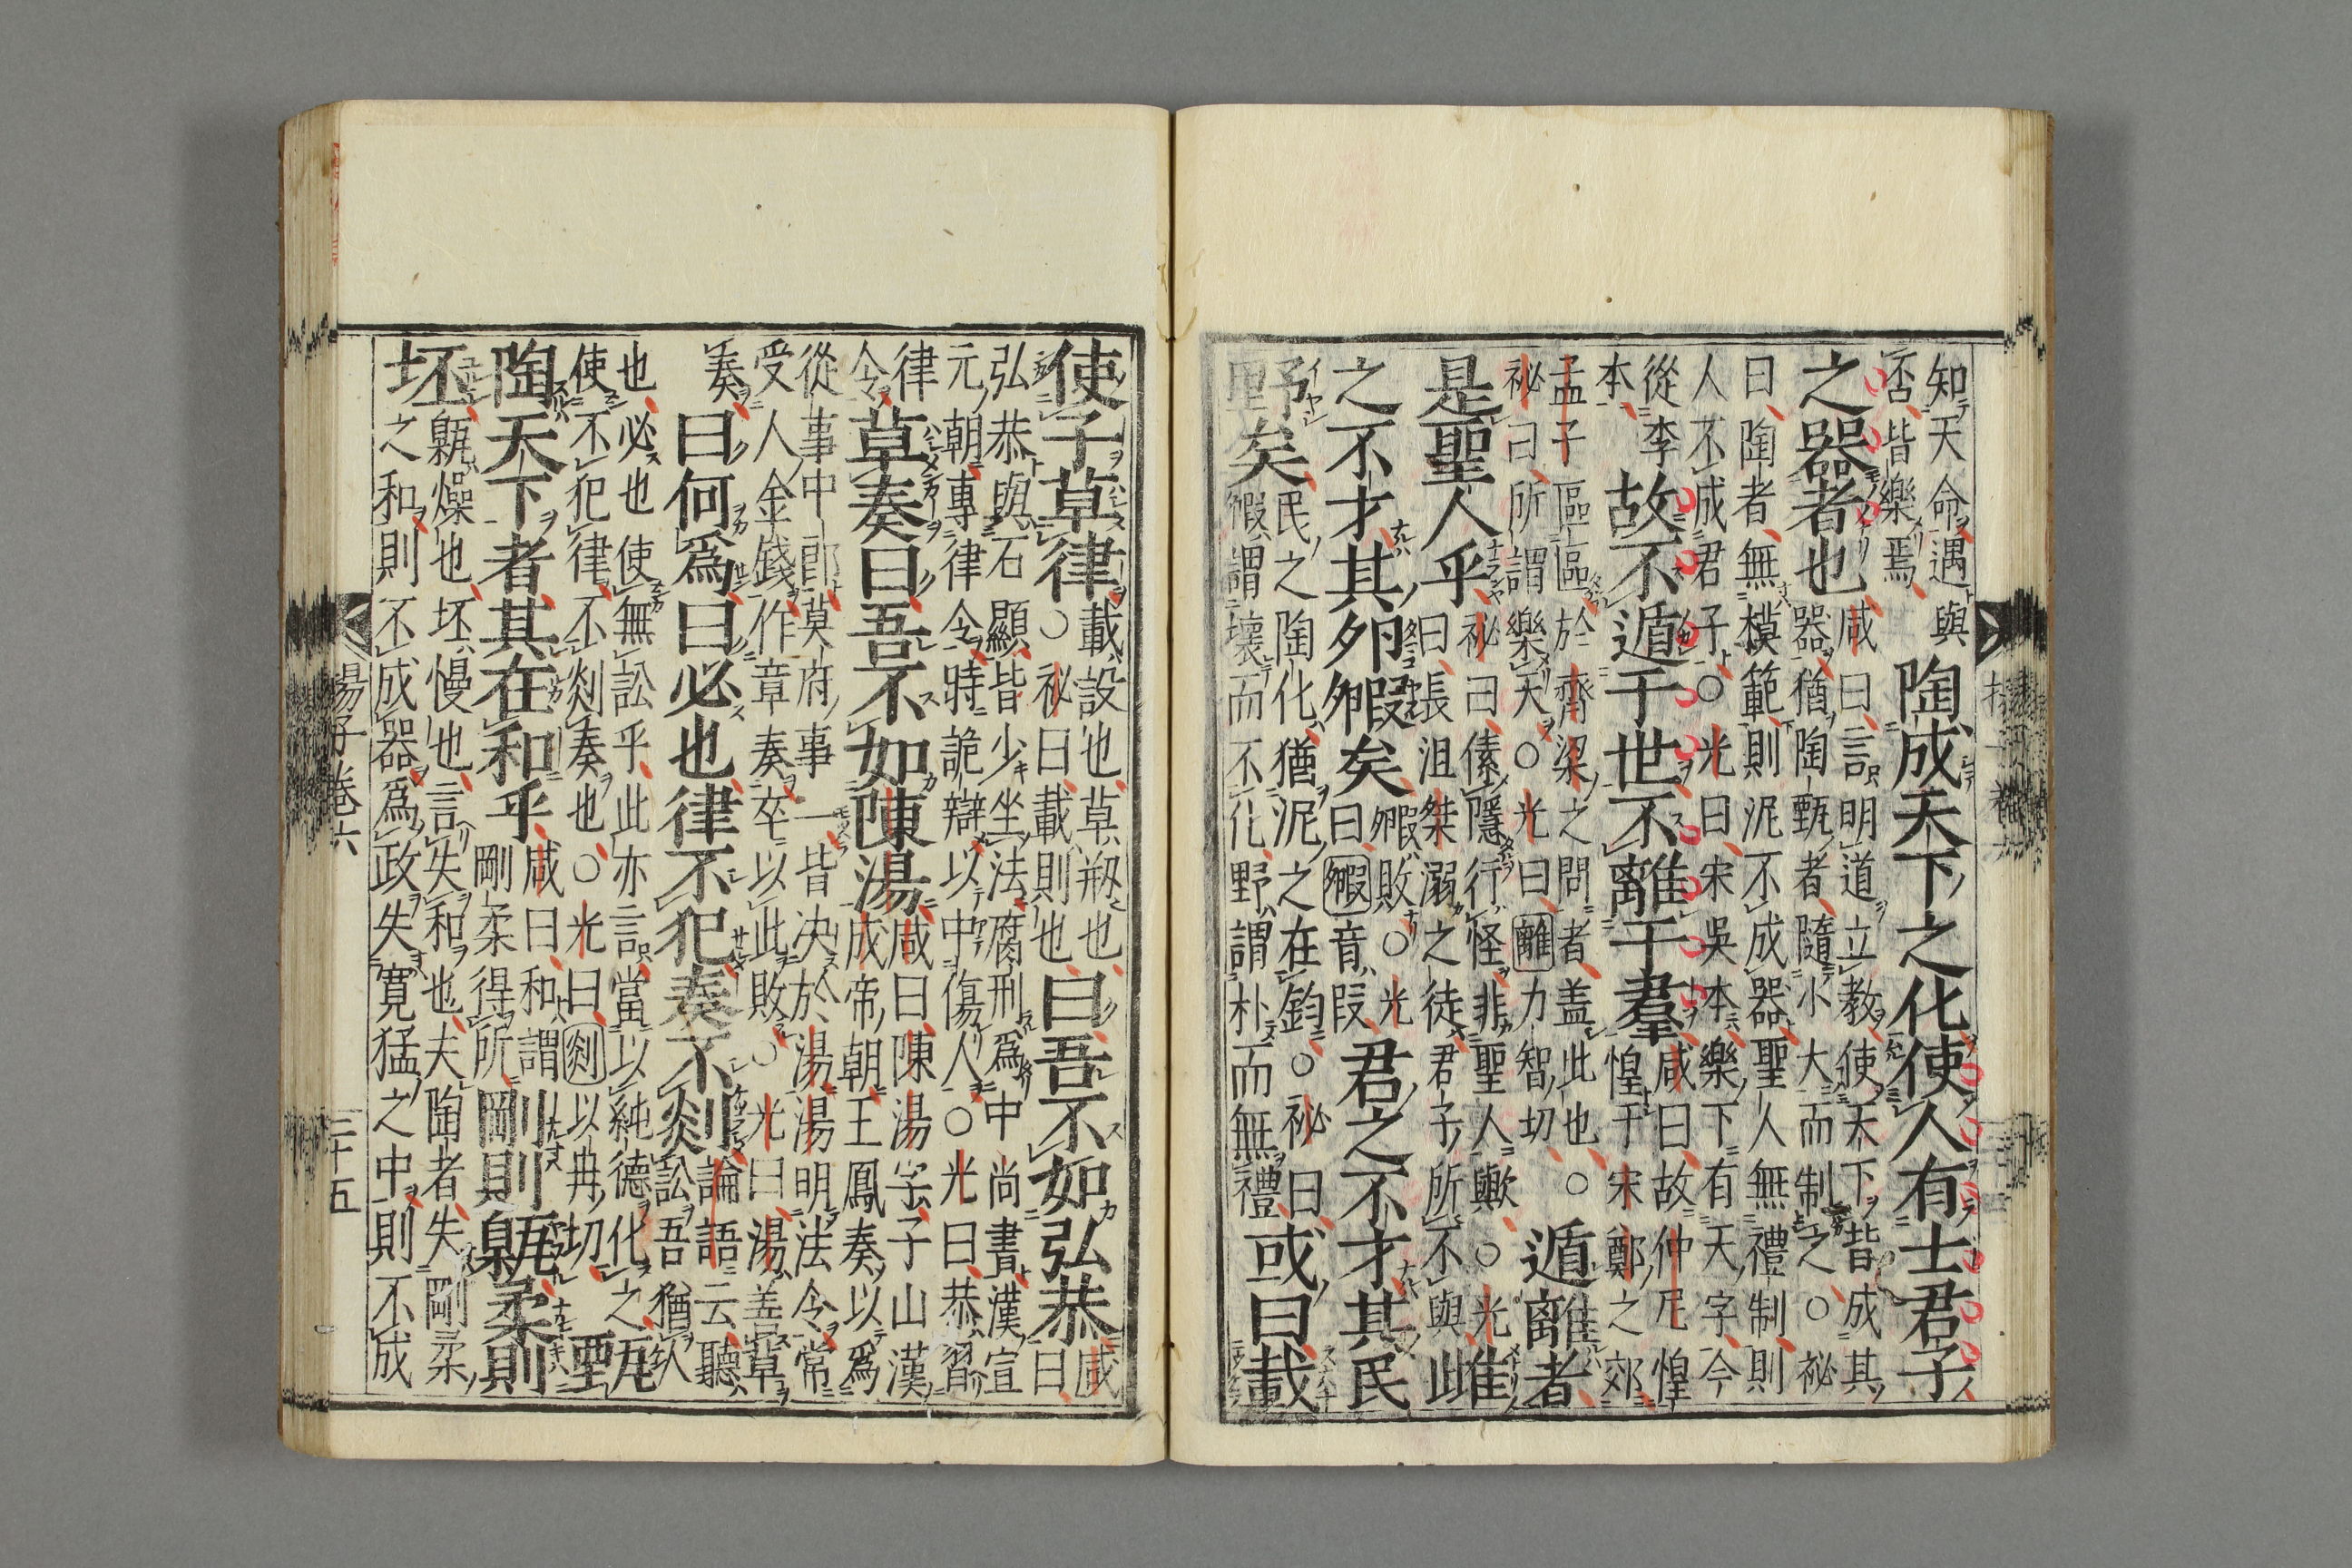 知天命遇與否皆樂焉陶成天下之化使人有士君子
之器者也咸曰言明道立教使天下皆成其器猶陶甄者隨小大而制之○祕
曰陶者無模範則泥不成器聖人無禮制則人不成君子○光曰宋吳本樂下有天字今
從李本故不遁于世不離于羣咸曰故仲尼惶惶于宋鄭之郊
孟子區區於齊梁之問者盖此也○祕曰所謂樂天○光曰離力智切遁離者
是聖人乎祕曰傃隱行怪非聖人歟○光曰長沮桀溺之徒君子所不與雌
之不才其卵毈矣毈敗○光曰毈音段君之不才其民
野矣民之陶化猶泥之在鈞○祕曰毈謂壞而不化野謂朴而無禮或曰載
使子草律載設也草剏也○祕曰載則也曰吾不如弘恭咸曰
弘恭與石顯皆少坐法腐刑爲中尚書漢宣元朝專律令特詭辯以中傷人○光曰恭習
律令草奏曰吾不如陳湯咸曰陳湯字子山漢成帝朝王鳳奏以爲
從事中郎莫府事一皆决於湯湯明法令常受人金錢作章奏卒以此敗○光曰湯善草
奏曰何爲曰必也律不犯奏不剡論語云聽訟吾猶人
也必也使無訟乎此亦言當以純德化之使不犯律不剡奏也○光曰剡以冉切甄
陶天下者其在和乎咸曰和謂剛柔得所剛則甈柔則
坯甈燥也坯慢也言失和也夫陶者失剛柔之和則不成器爲政失寬猛之中則不成
揚子卷六